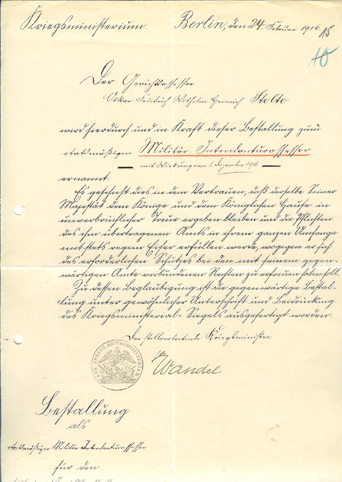 Kriegsministerium.
Berlin, den 24. Februar 1916
Der Gerichtsassessor
Oskar Friedrich Wilhelm Heinrich Stolte
wird hierdurch und in Kraft dieser Bestallung zum
etatmäßigen Militär-Intendanturassessor
mit Wirkung vom 1. Dezember 1915
ernannt.
Es geschieht dies in dem Vertrauen, daß derselbe Seiner
Majestät dem Könige und dem Königlichen Hause in
unverbrüchlicher Treue ergeben bleiben und die Pflichten
des ihm übertragenen Amts in ihrem ganzen Umfange
mit stets regem Eifer erfüllen werde, wogegen er sich
des erforderlichen Schutzes bei den mit seinem gegen-
wärtigen Amte verbundenen Rechten zu erfreuen haben soll.
Zu dessen Beglaubigung ist die gegenwärtige Bestal-
lung unter gewöhnlicher Unterschrift und Beidrückung
des Kriegsministerial-Siegels ausgefertigt worden.
Der stellvertretende Kriegsminister.
Wandel
Bestallung
als
etatmäßiger Militär-Intendanturassessor
für den